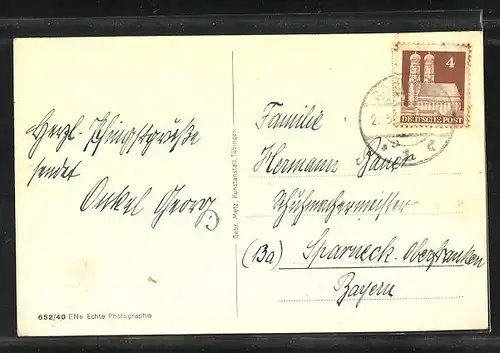 Herzl. Pfingstgrüße
sendet
Onkel Georg
652/40 ENe Echte Photographie
Gebr. Metz, Kunstanstalt, Tübingen
4
DEUTSCHE POST
Familie
Hermann
Schuhmachermeister
(13a) Sparneck. Oberfranken
Bayern